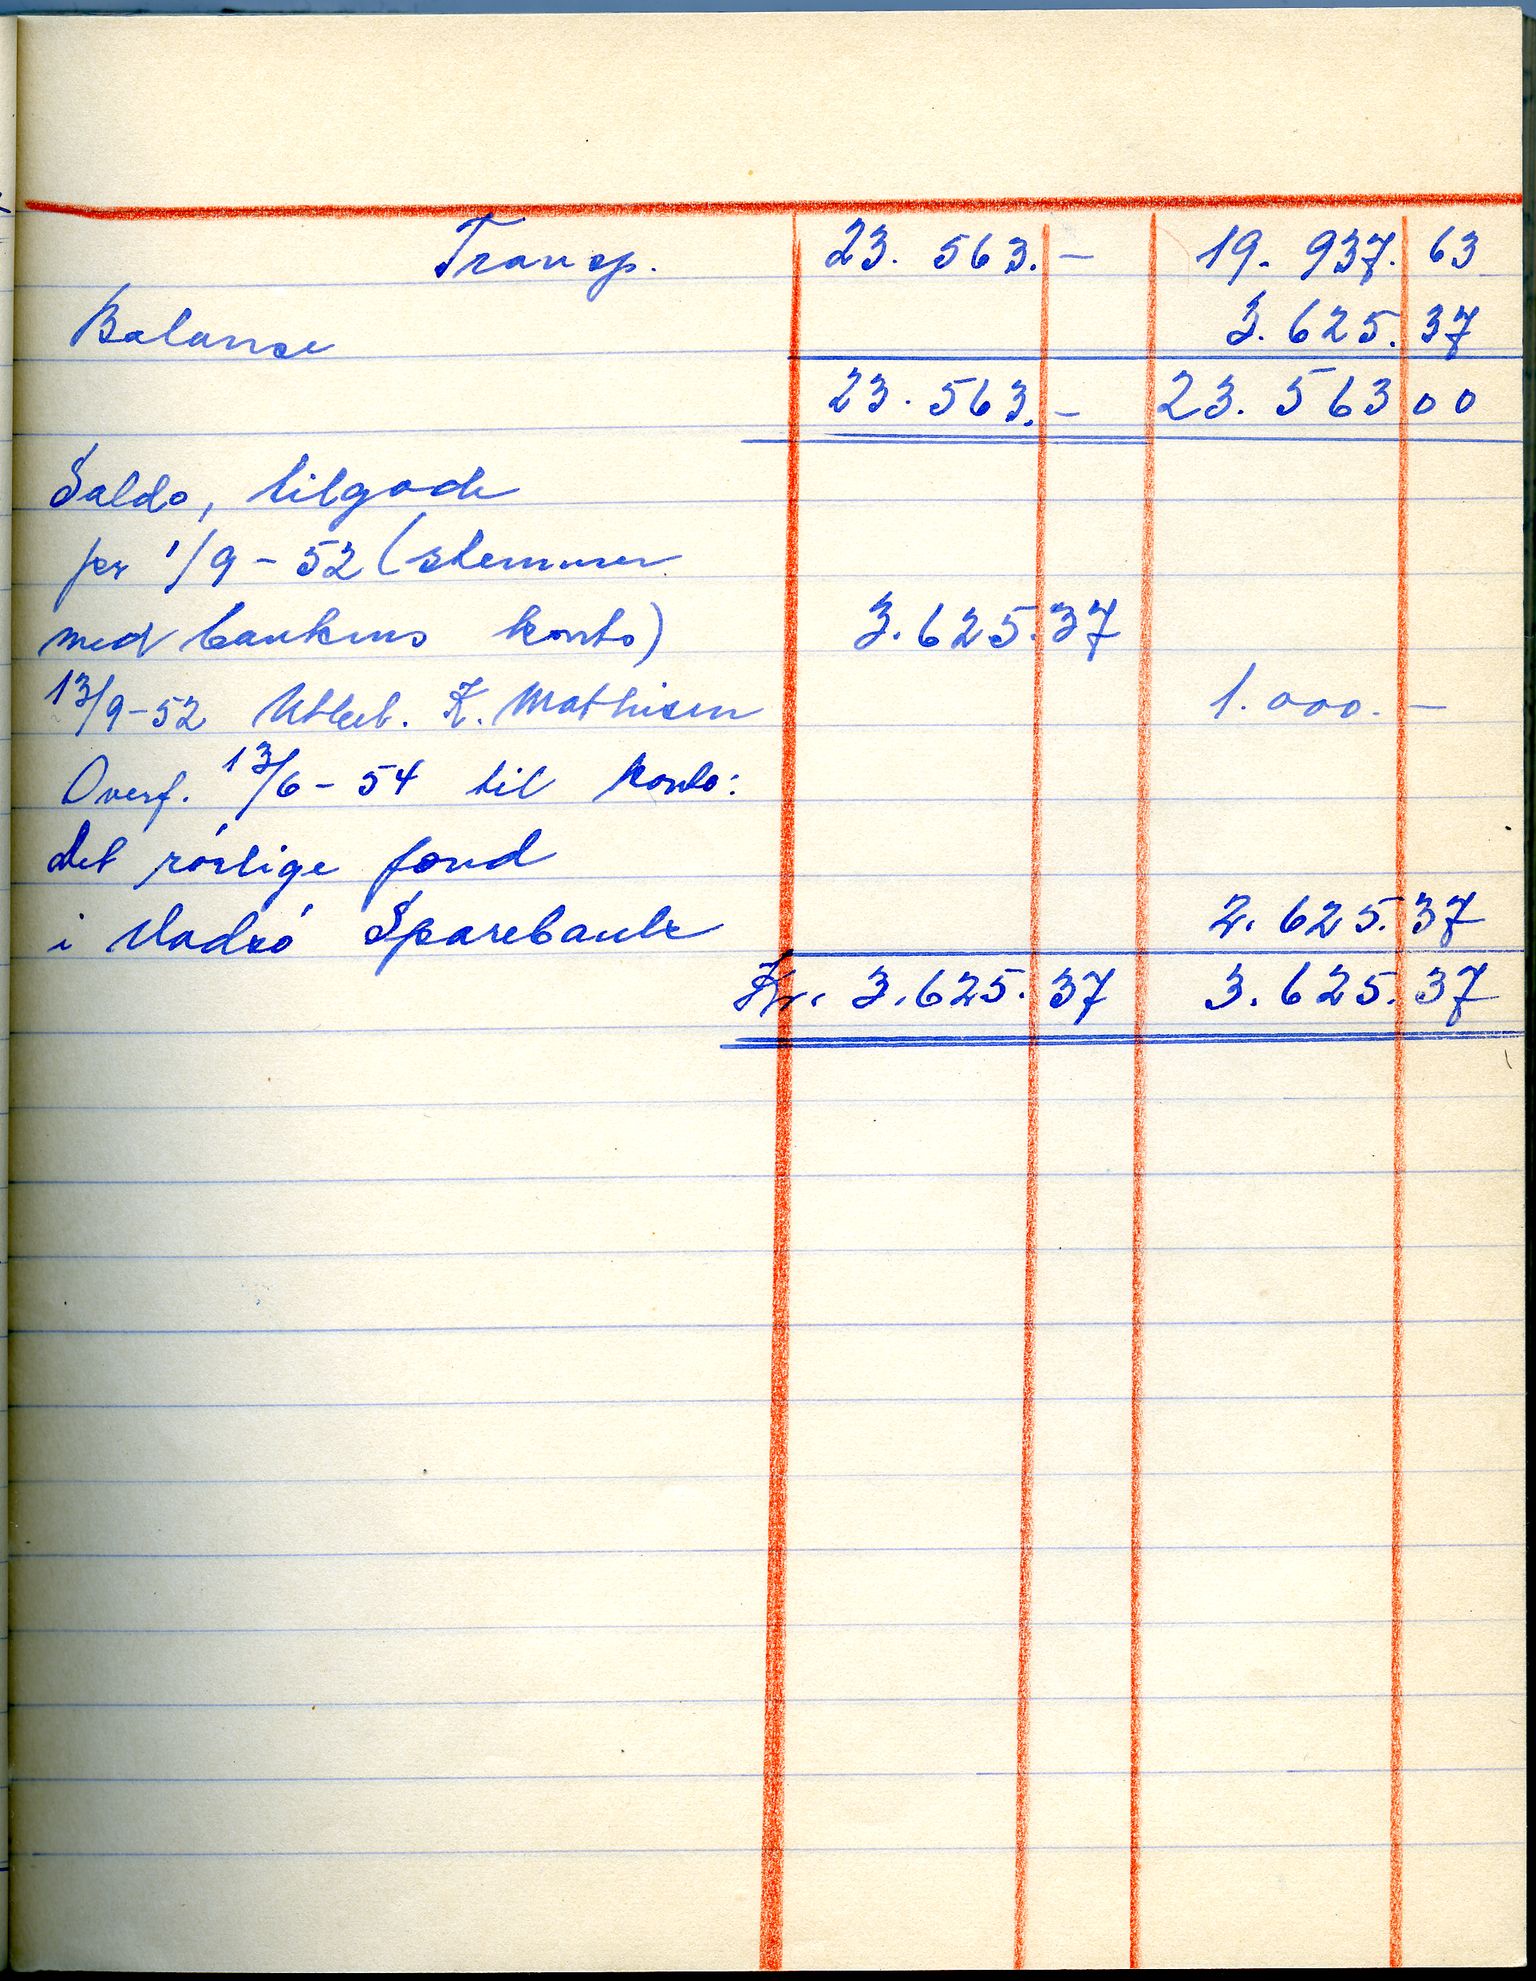 Transp. 23. 563. – 19. 937. 63
Balanse 3. 625. 37
23. 563. – 23. 563 00
Saldo, tilgode
per 1/9 – 52 (stemmer
med bankens konto) 3. 625. 37
13/9 – 52 Utbet. K. Mathisen 1. 000. –
Overf. 13/6 – 54 til konto:
Det rørlige fond
i Vadsø Sparebank 2. 625. 37
Kr. 3. 625. 37 3. 625. 37